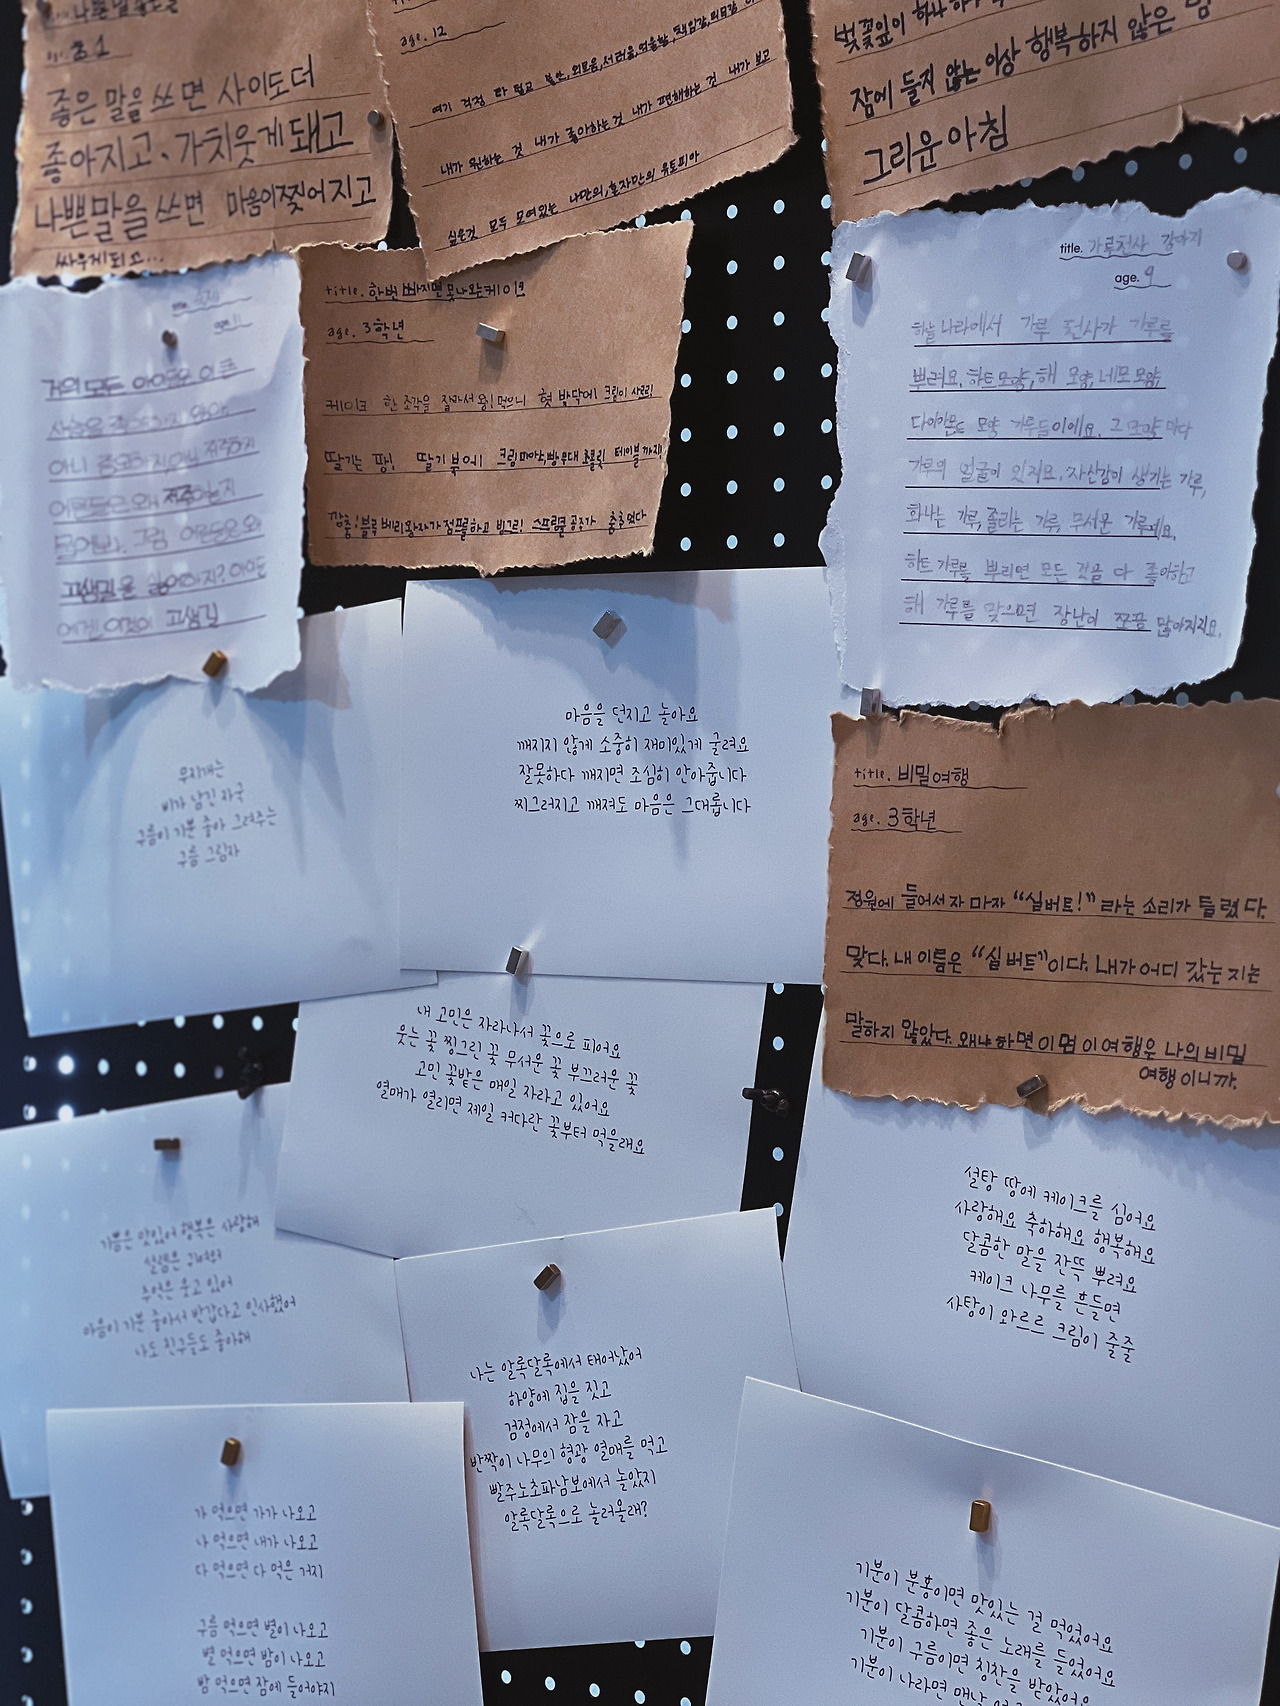 좋은 말을 쓰면 사이도더
좋아지고, 가치웃게돼고
나쁜말을 쓰면 마음이찢어지고
싸우게되고...
age. 12
여기 걱정 다 털고 불안, 외로움, 서러움, 억울함, 책임감, 의무감
내가 원하는 것 내가 좋아하는것 내가 편해하는 것 내가 보고
싶은것 모두 모여있는 나만의, 혼자만의 유토피아
벚꽃잎이 하나
잠에 들지 않는 이상 행복하지 않은 밤
그리운 아침
title. 한번 빠지면 못나오는케이크
age. 3학년
케이크 한 조각을 잘라서 왕! 먹으니 혓 바닥에 크림이 사르르!
딸기는 팡! 딸기 북에! 크림 피아노, 빵 무대 초콜릿 테이블 까지!
깡충! 블루베리왕자가 점프를하고 빙그르! 스프링클 공주가 춤을췄다
title. 가루천사 강아지
age. 9
하늘 나라에서 가루 천사가 가루를
뿌려요. 하트모양, 해 모양, 네모 모양,
다이아몬드 모양 가루들이에요. 그 모양 마다
가루의 얼굴이 있지요. 자신감이 생기는 가루,
화나는 가루, 졸리는 가루, 무서운 가루예요.
하트 가루를 뿌리면 모든 것을 다 좋아하고
해 가루를 맞으면 장난이 조금 많아지지요.
거의 모든 아이들은 이 큰
어른들은 왜
고생길
무지개는
비가 남긴 자국
구름이 기분 좋아 그려주는
구름 그림자
마음을 던지고 놀아요
깨지지 않게 소중히 재미있게 굴려요
잘못하다 깨지면 조심히 안아줍니다
찌그러지고 깨져도 마음은 그대롭니다
title. 비밀여행
age. 3학년
정원에 들어서자 마자 “실버트!” 라는 소리가 들렸다.
맞다. 내 이름은 “실버트”이다. 내가 어디 갔는 지는
말하지 않았다. 왜냐하면 이 몀 이 여행은 나의 비밀
여행 이니까.
내 고민은 자라나서 꽃으로 피어요
웃는 꽃 찡그린 꽃 무서운 꽃 부끄러운 꽃
고민 꽃밭은 매일 자라고 있어요
열매가 열리면 제일 커다란 꽃부터 먹을래요
설탕 땅에 케이크를 심어요
사랑해요 축하해요 행복해요
달콤한 말을 잔뜩 뿌려요
케이크 나무를 흔들면
사탕이 와르르 크림이 줄줄
기쁨은 맛있어 행복은 사랑해
설렘은
추억은 웃고 있어
마음이 기분 좋아서 반갑다고 인사했어
나도 친구들도 좋아해
나는 알록달록에서 태어났어
하양에 집을 짓고
검정에서 잠을 자고
반짝이 나무의 형광 열매를 먹고
빨주노초파남보에서 놀았지
알록달록으로 놀러올래?
가 먹으면 가가 나오고
나 먹으면 내가 나오고
다 먹으면 다 먹은 거지
구름 먹으면 별이 나오고
별 먹으면 밤이 나오고
밤 먹으면 잠에 들어야지
기분이 분홍이면 맛있는 걸 먹었어요
기분이 달콤하면 좋은 노래를 들었어요
기분이 구름이면 칭찬을 받았어요
기분이 나라면 맨날